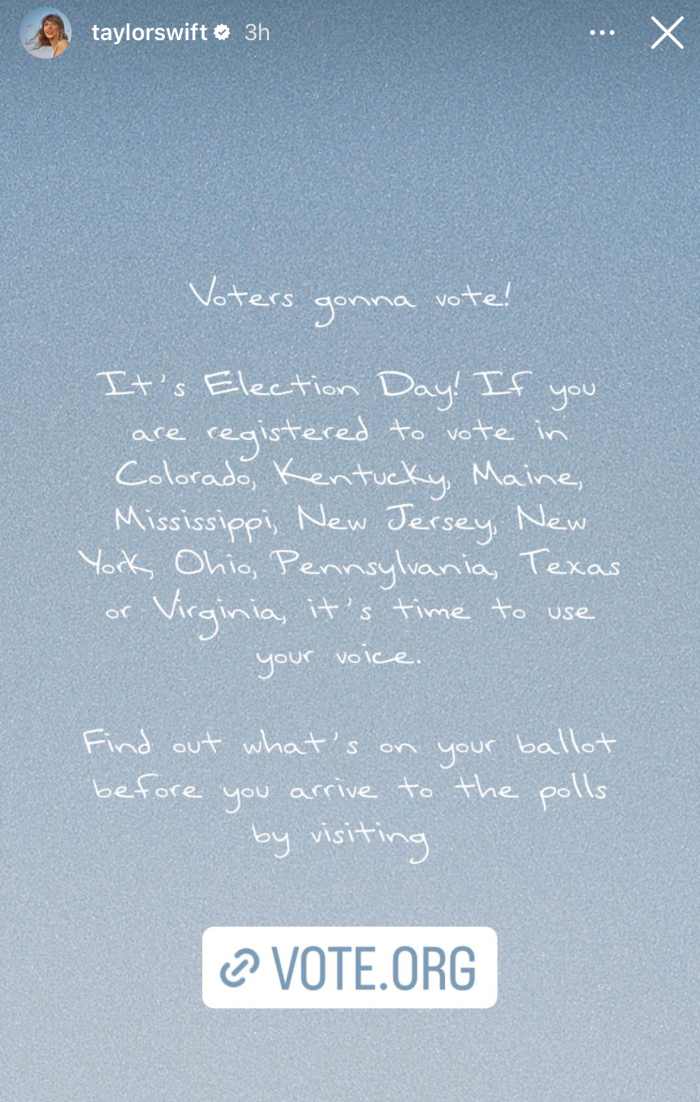 taylorswift 3h
Voters gonna vote!
It's Election Day! If you
are registered to vote in
Colorado, Kentucky, Maine,
Mississippi, New Jersey, New
York, Ohio, Pennsylvania, Texas
or Virginia, it's time to use
your voice.
Find out what's on your ballot
before you arrive to the polls
by visiting
VOTE.ORG